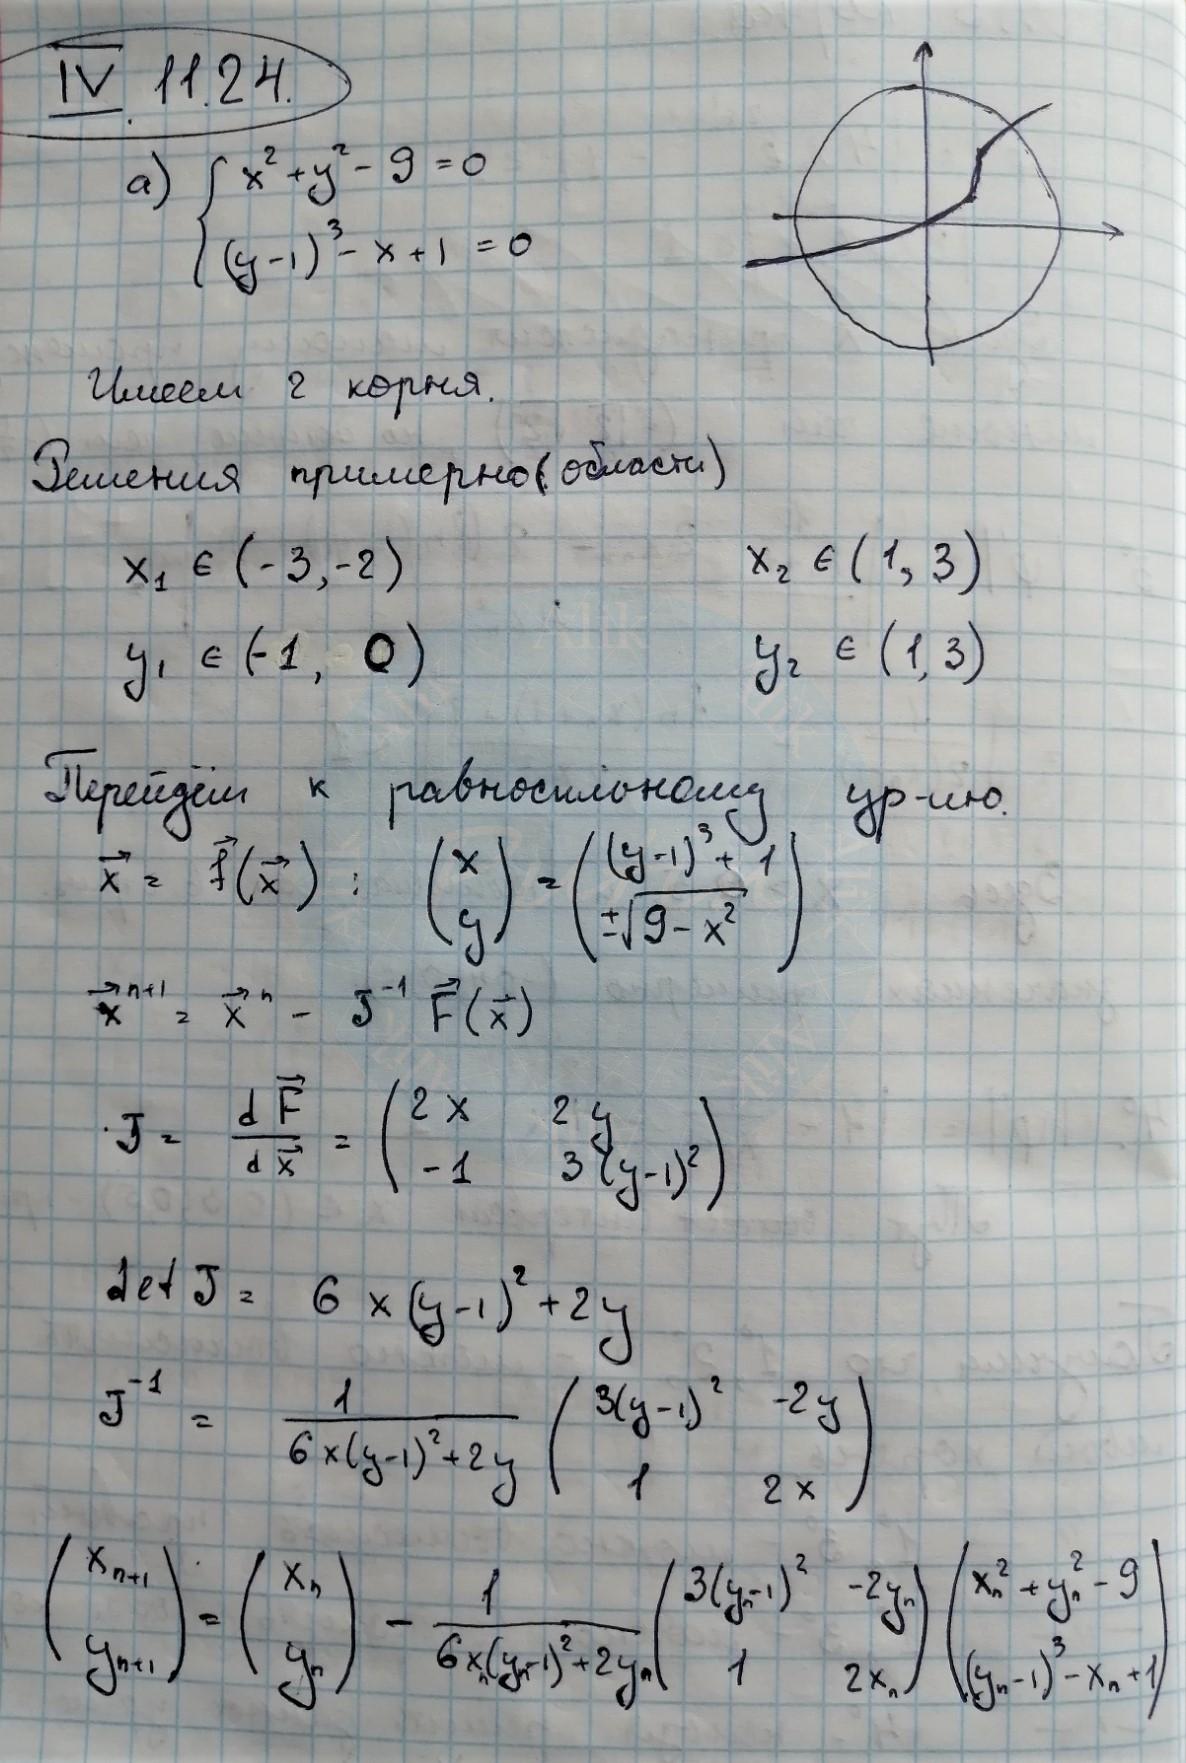 IV. 11.24.
а) { x² + y² - 9 = 0
(y-1)³ - x + 1 = 0
Имеем 2 корня.
Решения примерно (области)
x₁ ∈ (-3, -2) x₂ ∈ (1, 3)
y₁ ∈ (-1, 0) y₂ ∈ (1, 3)
Перейдём к равносильному ур-ию.
x⃗ = f⃗(x⃗) : (x y) = ((y-1)³ + 1 ±√(9 - x²))
x⃗ⁿ⁺¹ = x⃗ⁿ - J⁻¹ F⃗(x⃗)
J = dF⃗/dx⃗ = (2x 2y -1 3(y-1)²)
det J = 6x(y-1)² + 2y
J⁻¹ = 1/(6x(y-1)² + 2y) (3(y-1)² -2y 1 2x)
(xₙ₊₁ yₙ₊₁) = (xₙ yₙ) - 1/(6xₙ(yₙ-1)² + 2yₙ) (3(yₙ-1)² -2yₙ 1 2xₙ) (xₙ² + yₙ² - 9 (yₙ-1)³ - xₙ + 1)